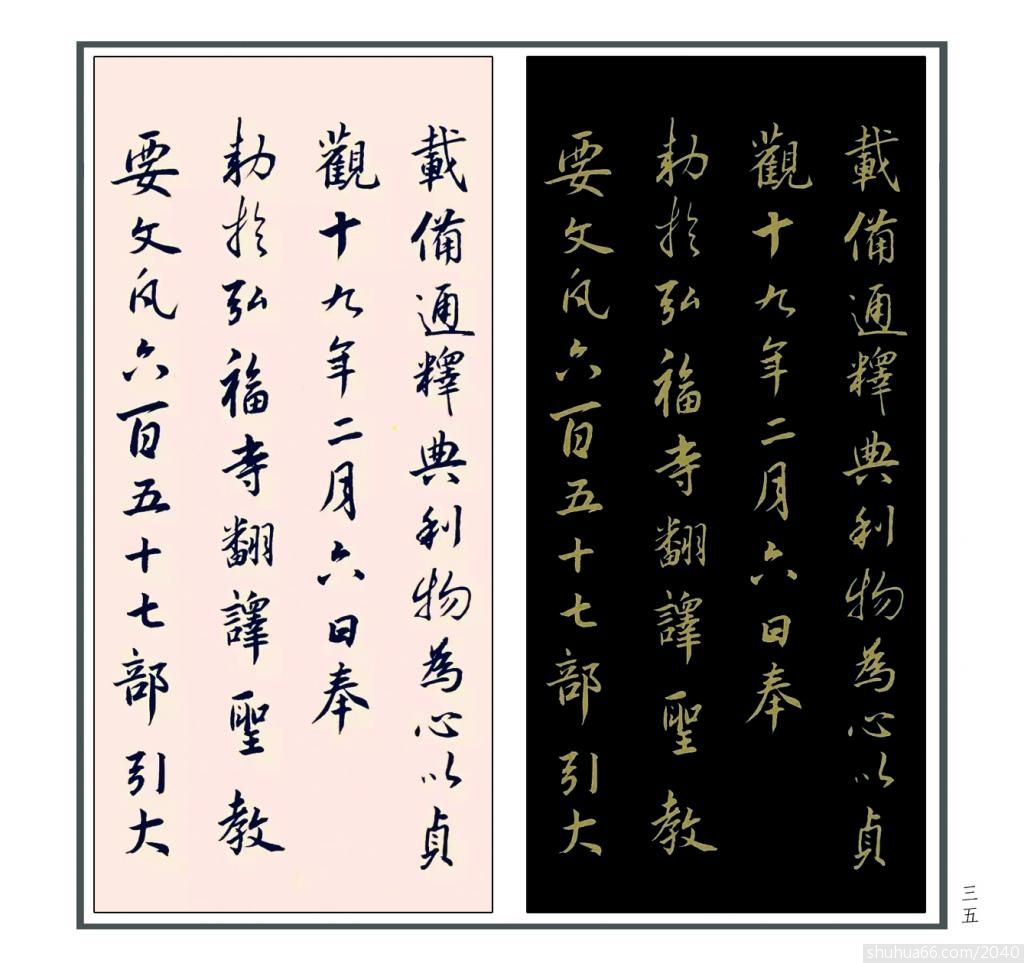 載備通釋典利物為心以貞
觀十九年二月六日奉
勅於弘福寺翻譯聖教
要文凡六百五十七部引大
載備通釋典利物為心以貞
觀十九年二月六日奉
勅於弘福寺翻譯聖教
要文凡六百五十七部引大
三五
shuhua66.com/2040